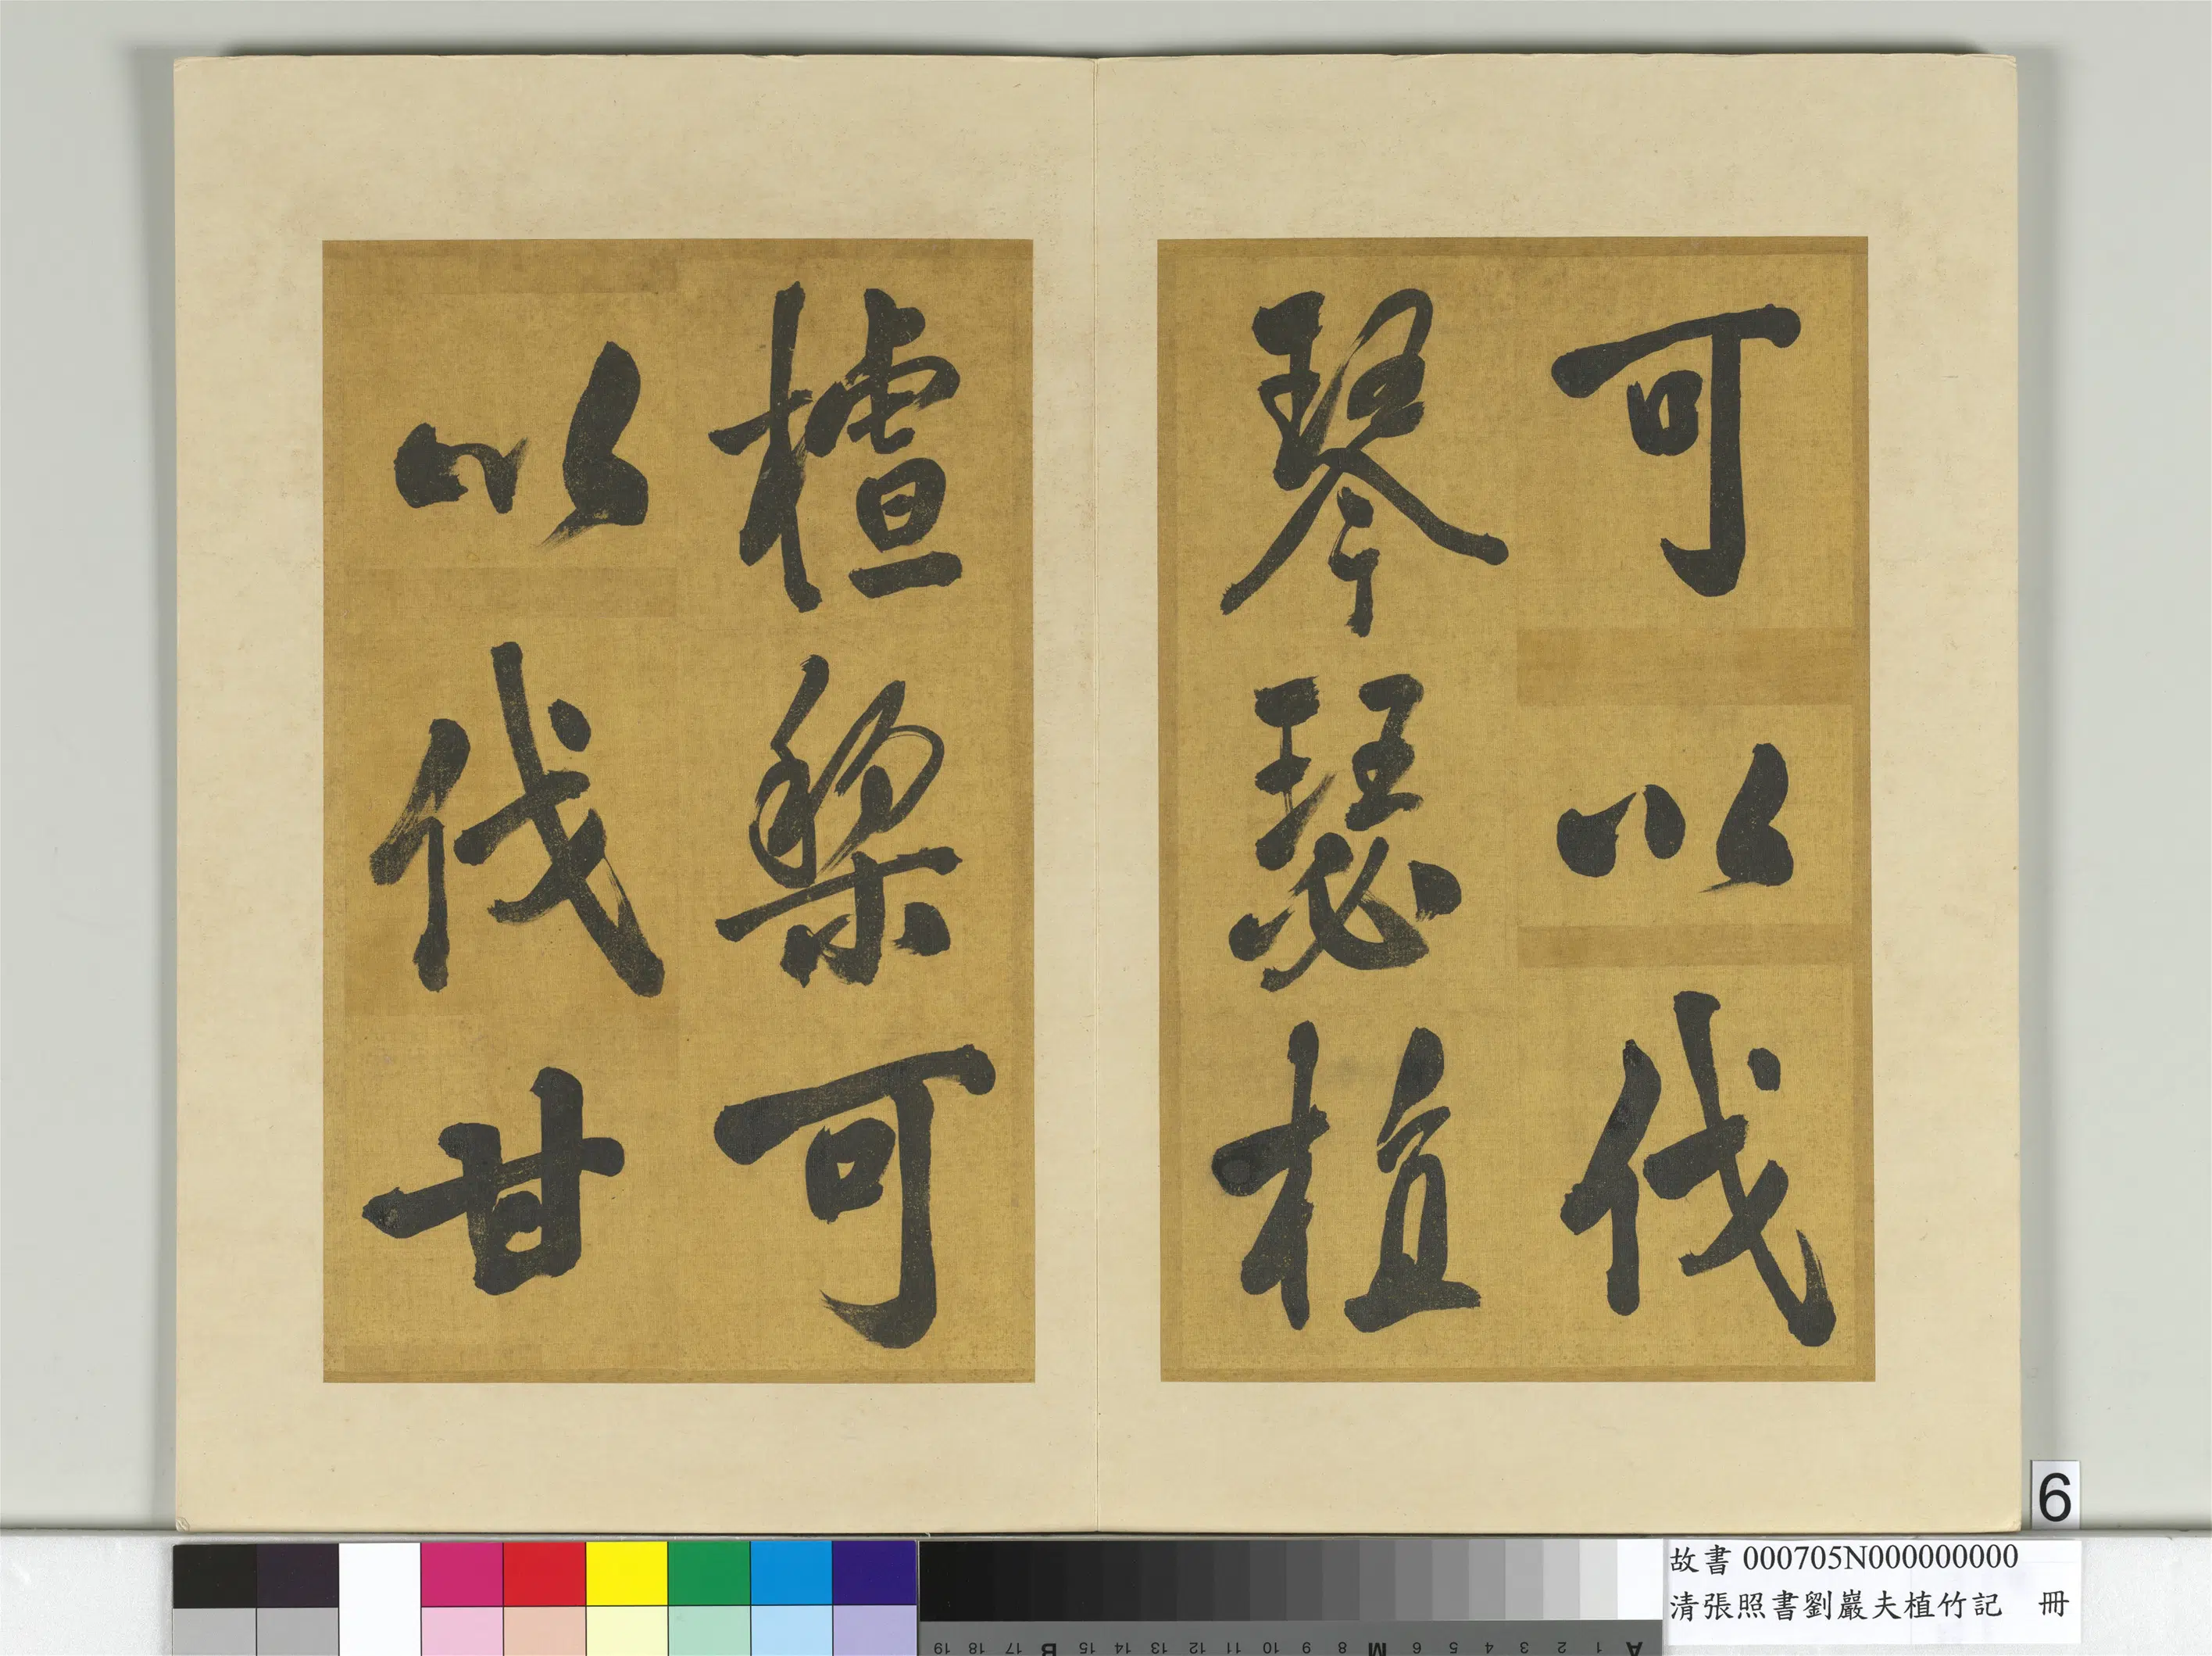 可以伐
琴瑟植
樝梨可
以伐甘
6
故書 000705N000000000
清張照書劉巖夫植竹記 冊
A 1 2 3 4 5 6 M 8 9 10 11 12 13 14 15 B 17 18 19